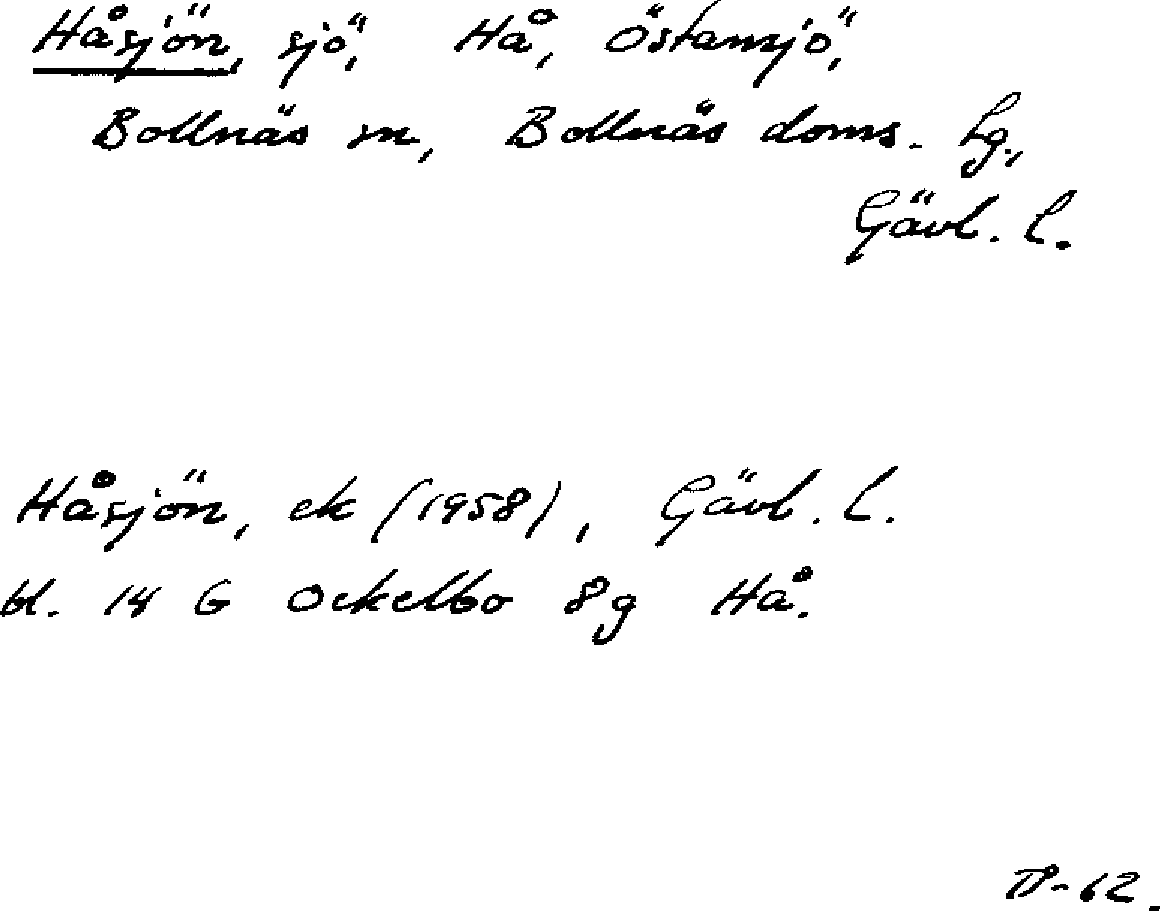 Håsjön, sjö, Hå, Östansjö,
Bollnäs sn, Bollnäs doms. lg.,
Gävl. l.
Håsjön, ek (1958), Gävl. l.
bl. 14 G Ockelbo 8g Hå.
-62.